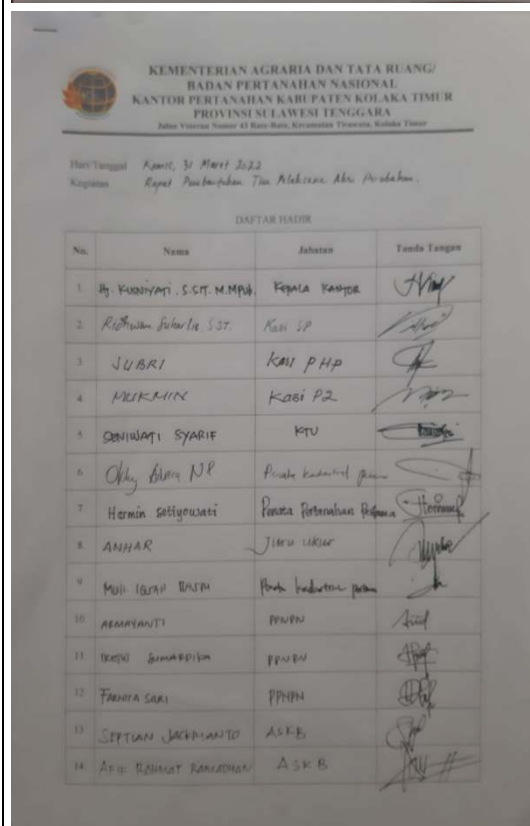 KEMENTERIAN AGRARIA DAN TATA RUANG/
BADAN PERTANAHAN NASIONAL
KANTOR PERTANAHAN KABUPATEN KOLAKA TIMUR
PROVINSI SULAWESI TENGGARA
Jalan Veteran Nomor 43 Rate-Rate, Kecamatan Tirawuta, Kolaka Timur
Hari/Tanggal Kamis, 31 Maret 2022
Kegiatan Rapat Pembentukan Tim Pelaksana Aksi Perubahan.
DAFTAR HADIR
No. Nama Jabatan Tanda Tangan
1. Hj. KUSNIYATI. S.SIT. M.MPub. KEPALA KANTOR
2. Ridhwan Suharlin, S.ST. Kasi SP
3 JUBRI Kasi PHP
4 MUKMIN Kasi P2
5 SENIWATI SYARIF KTU
6 Okky NP Penata kadastral
7 Hermin Setiyowati Penata Pertanahan Pertama
8. ANHAR JURU UKUR
9 MUH. IQBAL Penata kadastral pertama
10 ARMAYANTI PPNPN
11 SUMARDIKA PPNPN
12 FARNITA SARI PPNPN
13 SEPTIAN JACKMIANTO ASKB
14. ASIF RAHMAT RAMADHAN ASKB